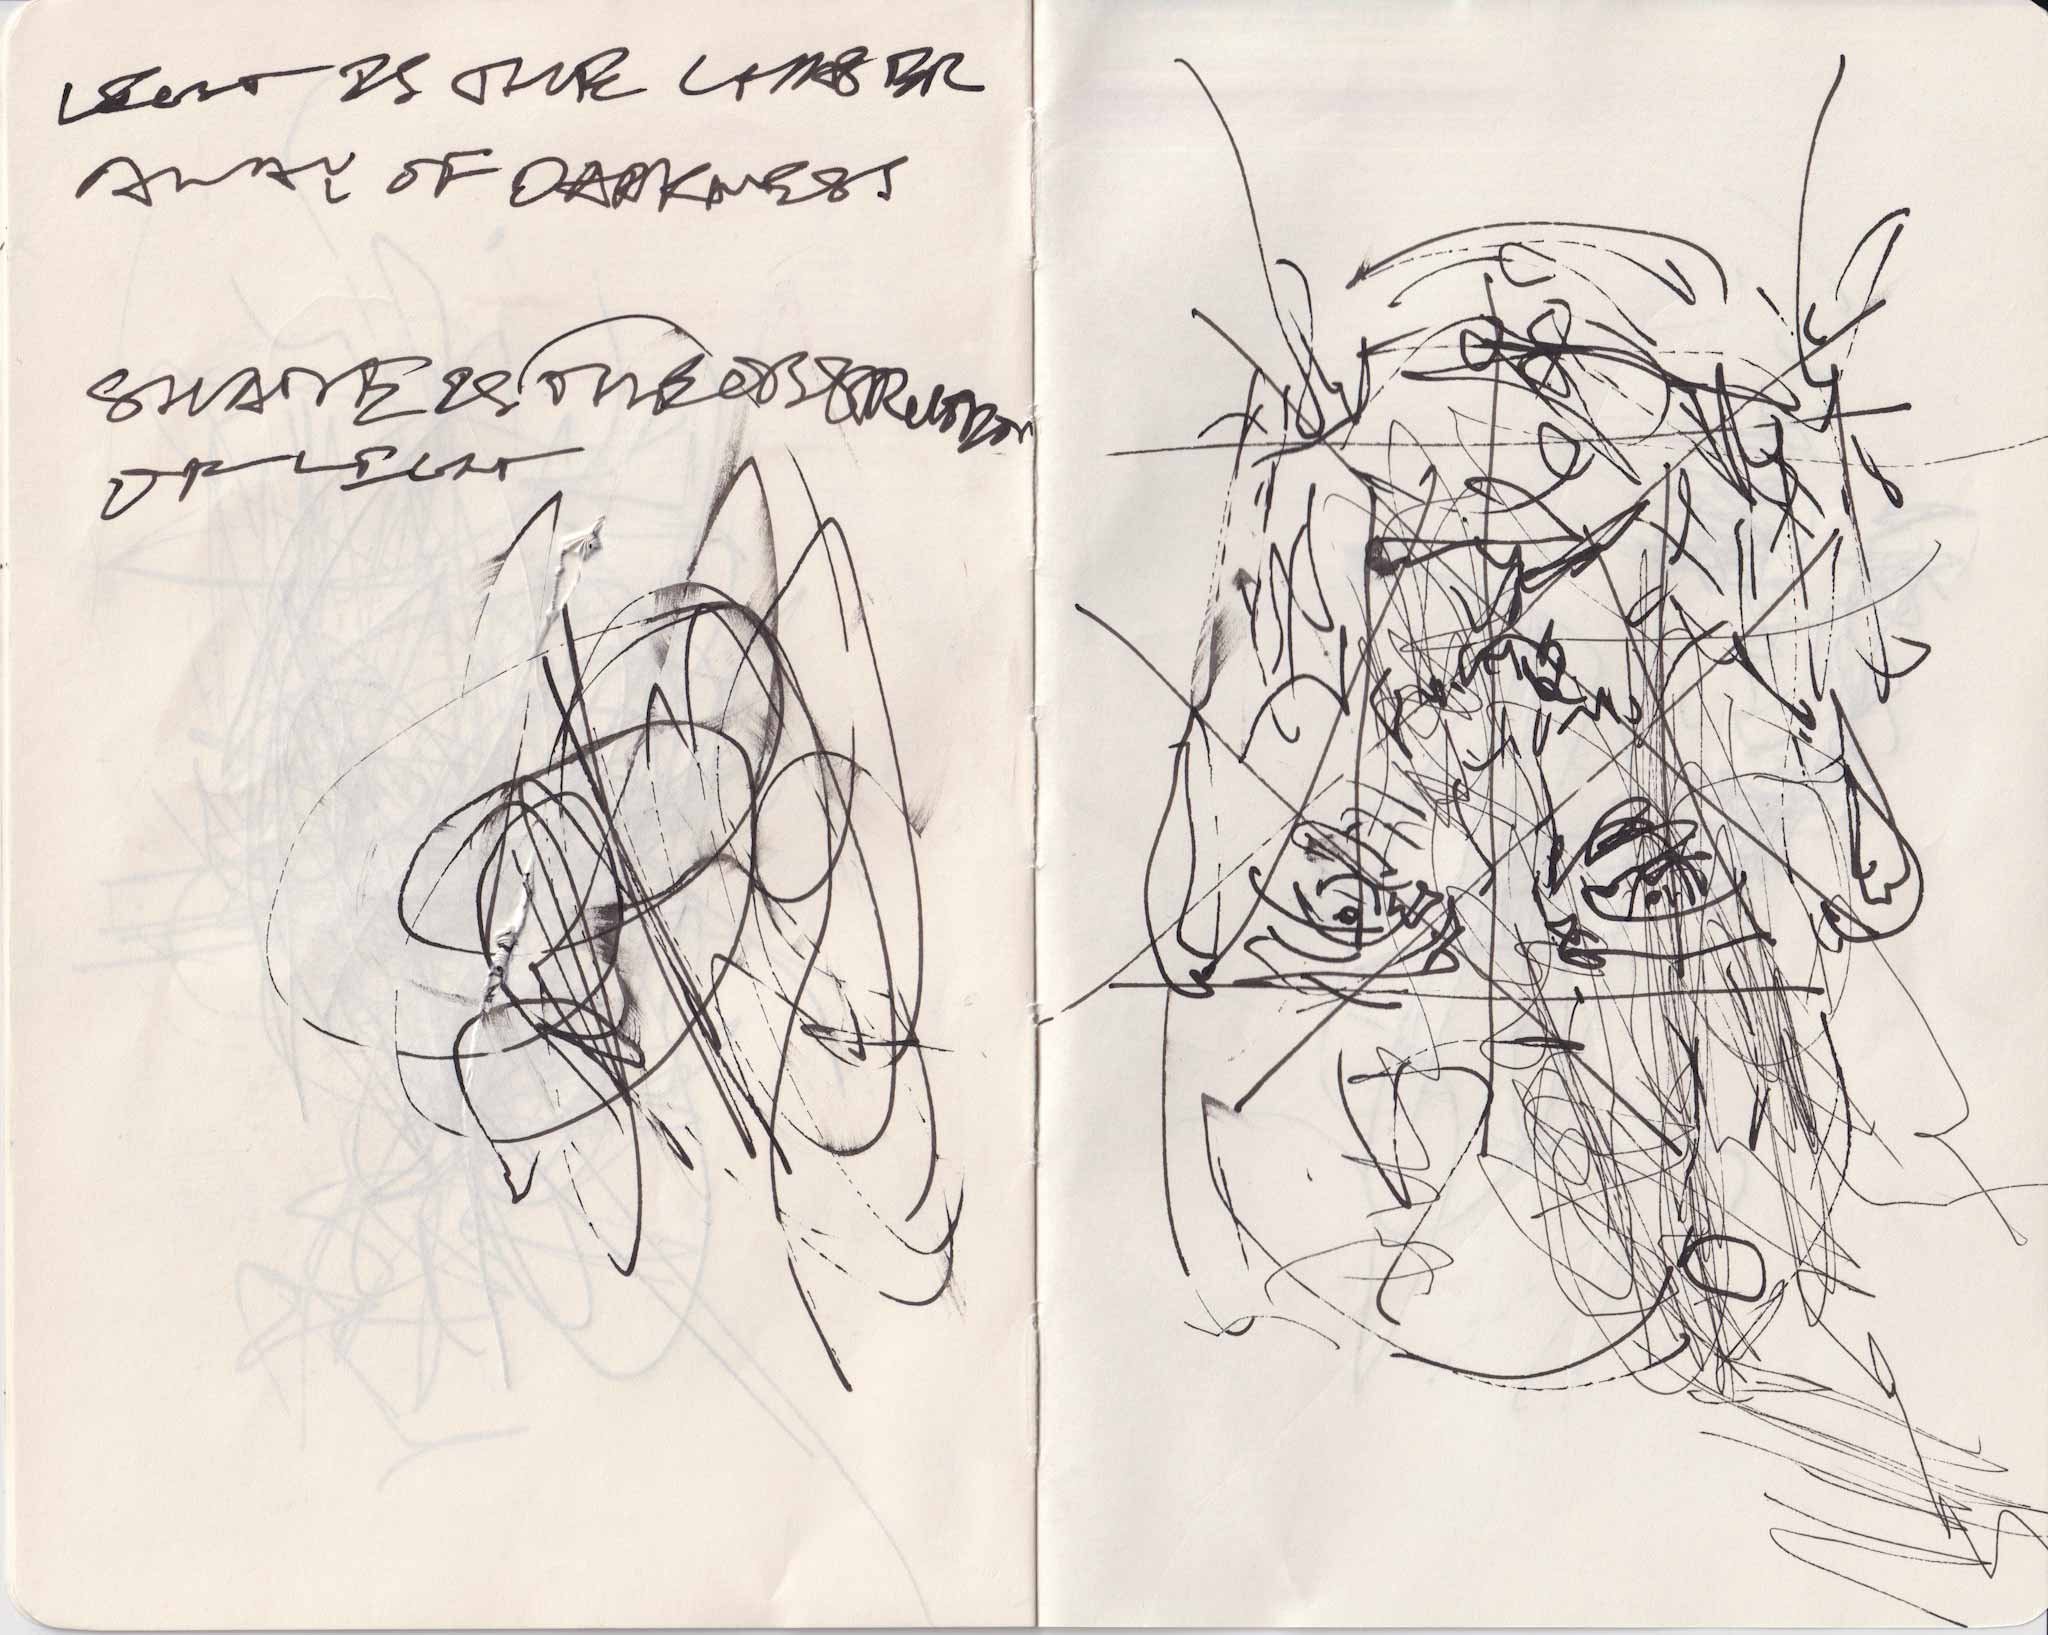 LIGHT IS THE
AWAY OF DARKNESS
SHADE IS THE OBSTRUCTION
OF LIGHT